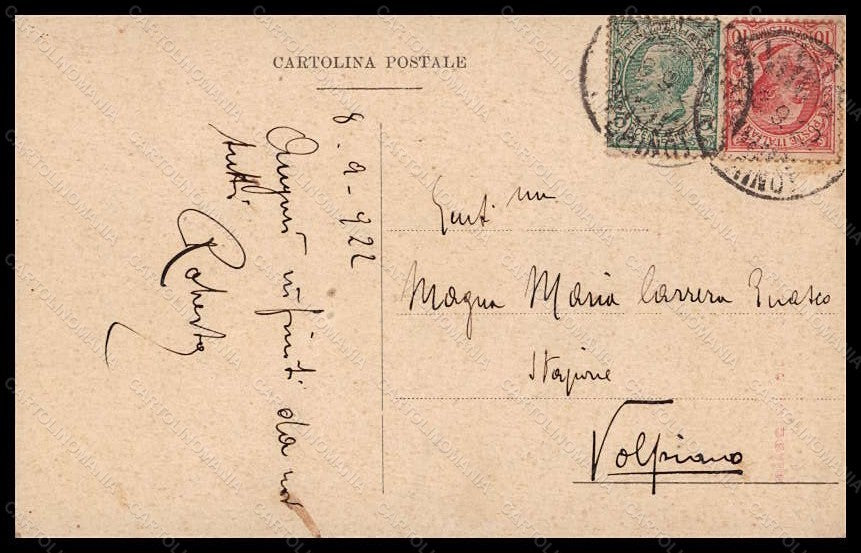 CARTOLINA POSTALE
8-9-922
Auguri infiniti da noi
tutti
Roberto
Gent ma
Magna Maria Carrera Enasco
Stazione
Volpiano
10
10
POSTE ITALIANE
CARTOLINOMANIA